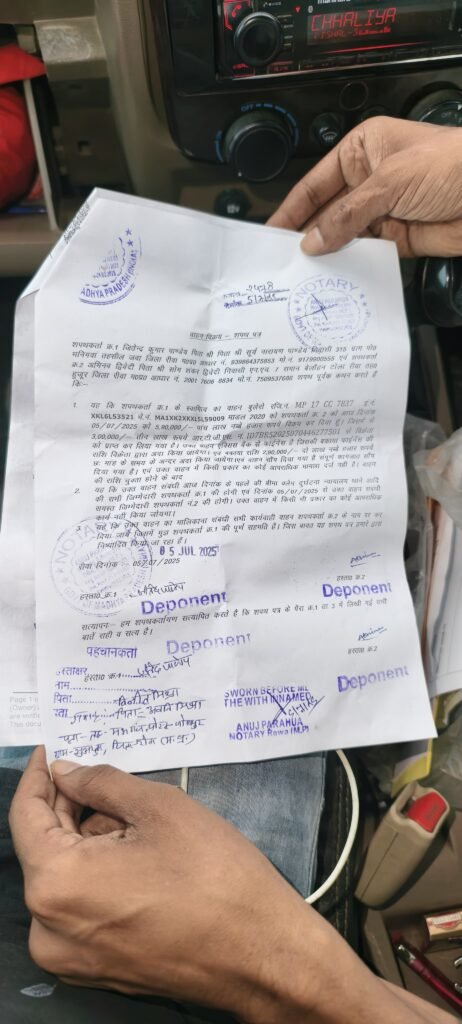 CHHALIYA
OFF
12V
ADHYA PRADESH (INDIA)
2428
5/7/25
NOTARY
वाहन विक्रय – शपथ पत्र
शपथकर्ता क्र.1 जितेन्द्र कुमार पाण्डेय पिता श्री पिता श्री सूर्य नारायण पाण्डेय निवासी 319 ग्राम पोस्ट
तहसील जवा जिला रीवा म0प्र0 आधार नं. मो. 9179900555 एवं शपथकर्ता
क्र.2 अभिनव द्विवेदी पिता श्री सोम शंकर द्विवेदी निवासी समान बेलौहन टोला रीवा तहसील
हुजूर जिला रीवा म0प्र0 आधार नं. 2001 7608 8834 मो.न. 7509537688 शपथ पूर्वक कथन करते हैं
कि:–
1. यह कि शपथकर्ता क्र.1 के स्वामित्व का वाहन बुलेरो रजि.न. MP 17 CC 7837 इं.नं.
XKL6L53521 चे.नं. MA1XK2XKXL5L59009 माडल 2020 को शपथकर्ता क्र.2 को आज दिनांक
05/07/2025 को 5,90,000/– पांच लाख नब्बे हजार रूपये विक्रय कर दिया हूँ। जिसमें से
3,00,000/– तीन लाख रूपये आर.टी.जी.एस. नं. से विक्रेता
को प्राप्त कर लिया गया है। उक्त वाहन एक्सिस बैंक से फाईनेंस है जिसकी बकाया फाईनेंस की
राशि विक्रेता द्वारा अदा किया जायेगा एवं बकाया राशि 2,90,000/– दो लाख नब्बे हजार रूपये
छः माह के समय के अन्दर अदा किया जायेगा एवं वाहन सौंप दिया गया है संपूर्ण कागजात सौंप
दिया गया है। एवं उक्त वाहन में किसी प्रकार का कोई आपराधिक मामला दर्ज नही है। वाहन
की राशि चुकता होने के बाद
2. यह कि उक्त वाहन संबंधी आज दिनांक के पहले की बीमा क्लेम दुर्घटना न्यायालय थाने आदि
की सभी जिम्मेदारी शपथकर्ता क्र.1 की होगी एवं दिनांक 05/07/2025 से उक्त वाहन संबंधी
समस्त जिम्मेदारी शपथकर्ता नं.2 की होगी। उक्त वाहन में किसी भी प्रकार का कोई आपराधिक
कार्य नहीं किया जायेगा।
3. यह कि उक्त वाहन का मालिकाना संबंधी सभी कार्यवाही वाहन शपथकर्ता क्र.2 के नाम पर कर
दिया जावे जिसमें मुझ शपथकर्ता क्र.1 की पूर्ण सहमति है। जिस बावत यह शपथ पत्र हमारे द्वारा
निष्पादित किया जा रहा है।
05 JUL 2025
रीवा दिनांक :– 05/07/2025
NOTARY
हस्ता0 क्र.1
हस्ता0 क्र.2
Deponent
Deponent
सत्यापन:– हम शपथकर्तागण सत्यापित करते है कि शपथ पत्र के पैरा क्र.1 ता 3 में लिखी गई सभी
बातें सही व सत्य है।
Deponent
पहचानकर्ता
हस्ता0 क्र.1
हस्ता0 क्र.2
हस्ताक्षर
Deponent
नाम
पिता
SWORN BEFORE ME
THE WITHINNAMED
ANUJ PARAHUA
NOTARY Rewa (M.P)
Page 1
(Owner)
are verifie
This docu